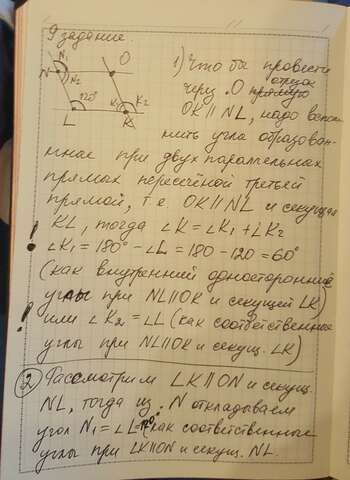 9 задание.
N N₁ N₂ O
120° K₁ K₂
L K
1) Что бы провести
через .O отрезок прямую
OK || NL, надо вспом
нить угла образован-
ные при двух параллельных
прямых пересечёной третьей
прямой, т.е OK || NL и секущая
KL, тогда ∠K = ∠K₁ + ∠K₂
∠K₁ = 180° - ∠L = 180 - 120 = 60°
(как внутренний односторонние
углы при NL || OK и секущей LK)
или ∠K₂ = ∠L (как соответственные
углы при NL || OK и секущ. LK)
2) Рассмотрим LK || ON и секущ.
NL, тогда из .N откладываем
угол N₁ = ∠L = 120° (как соответственные
углы при LK || ON и секущ. NL.